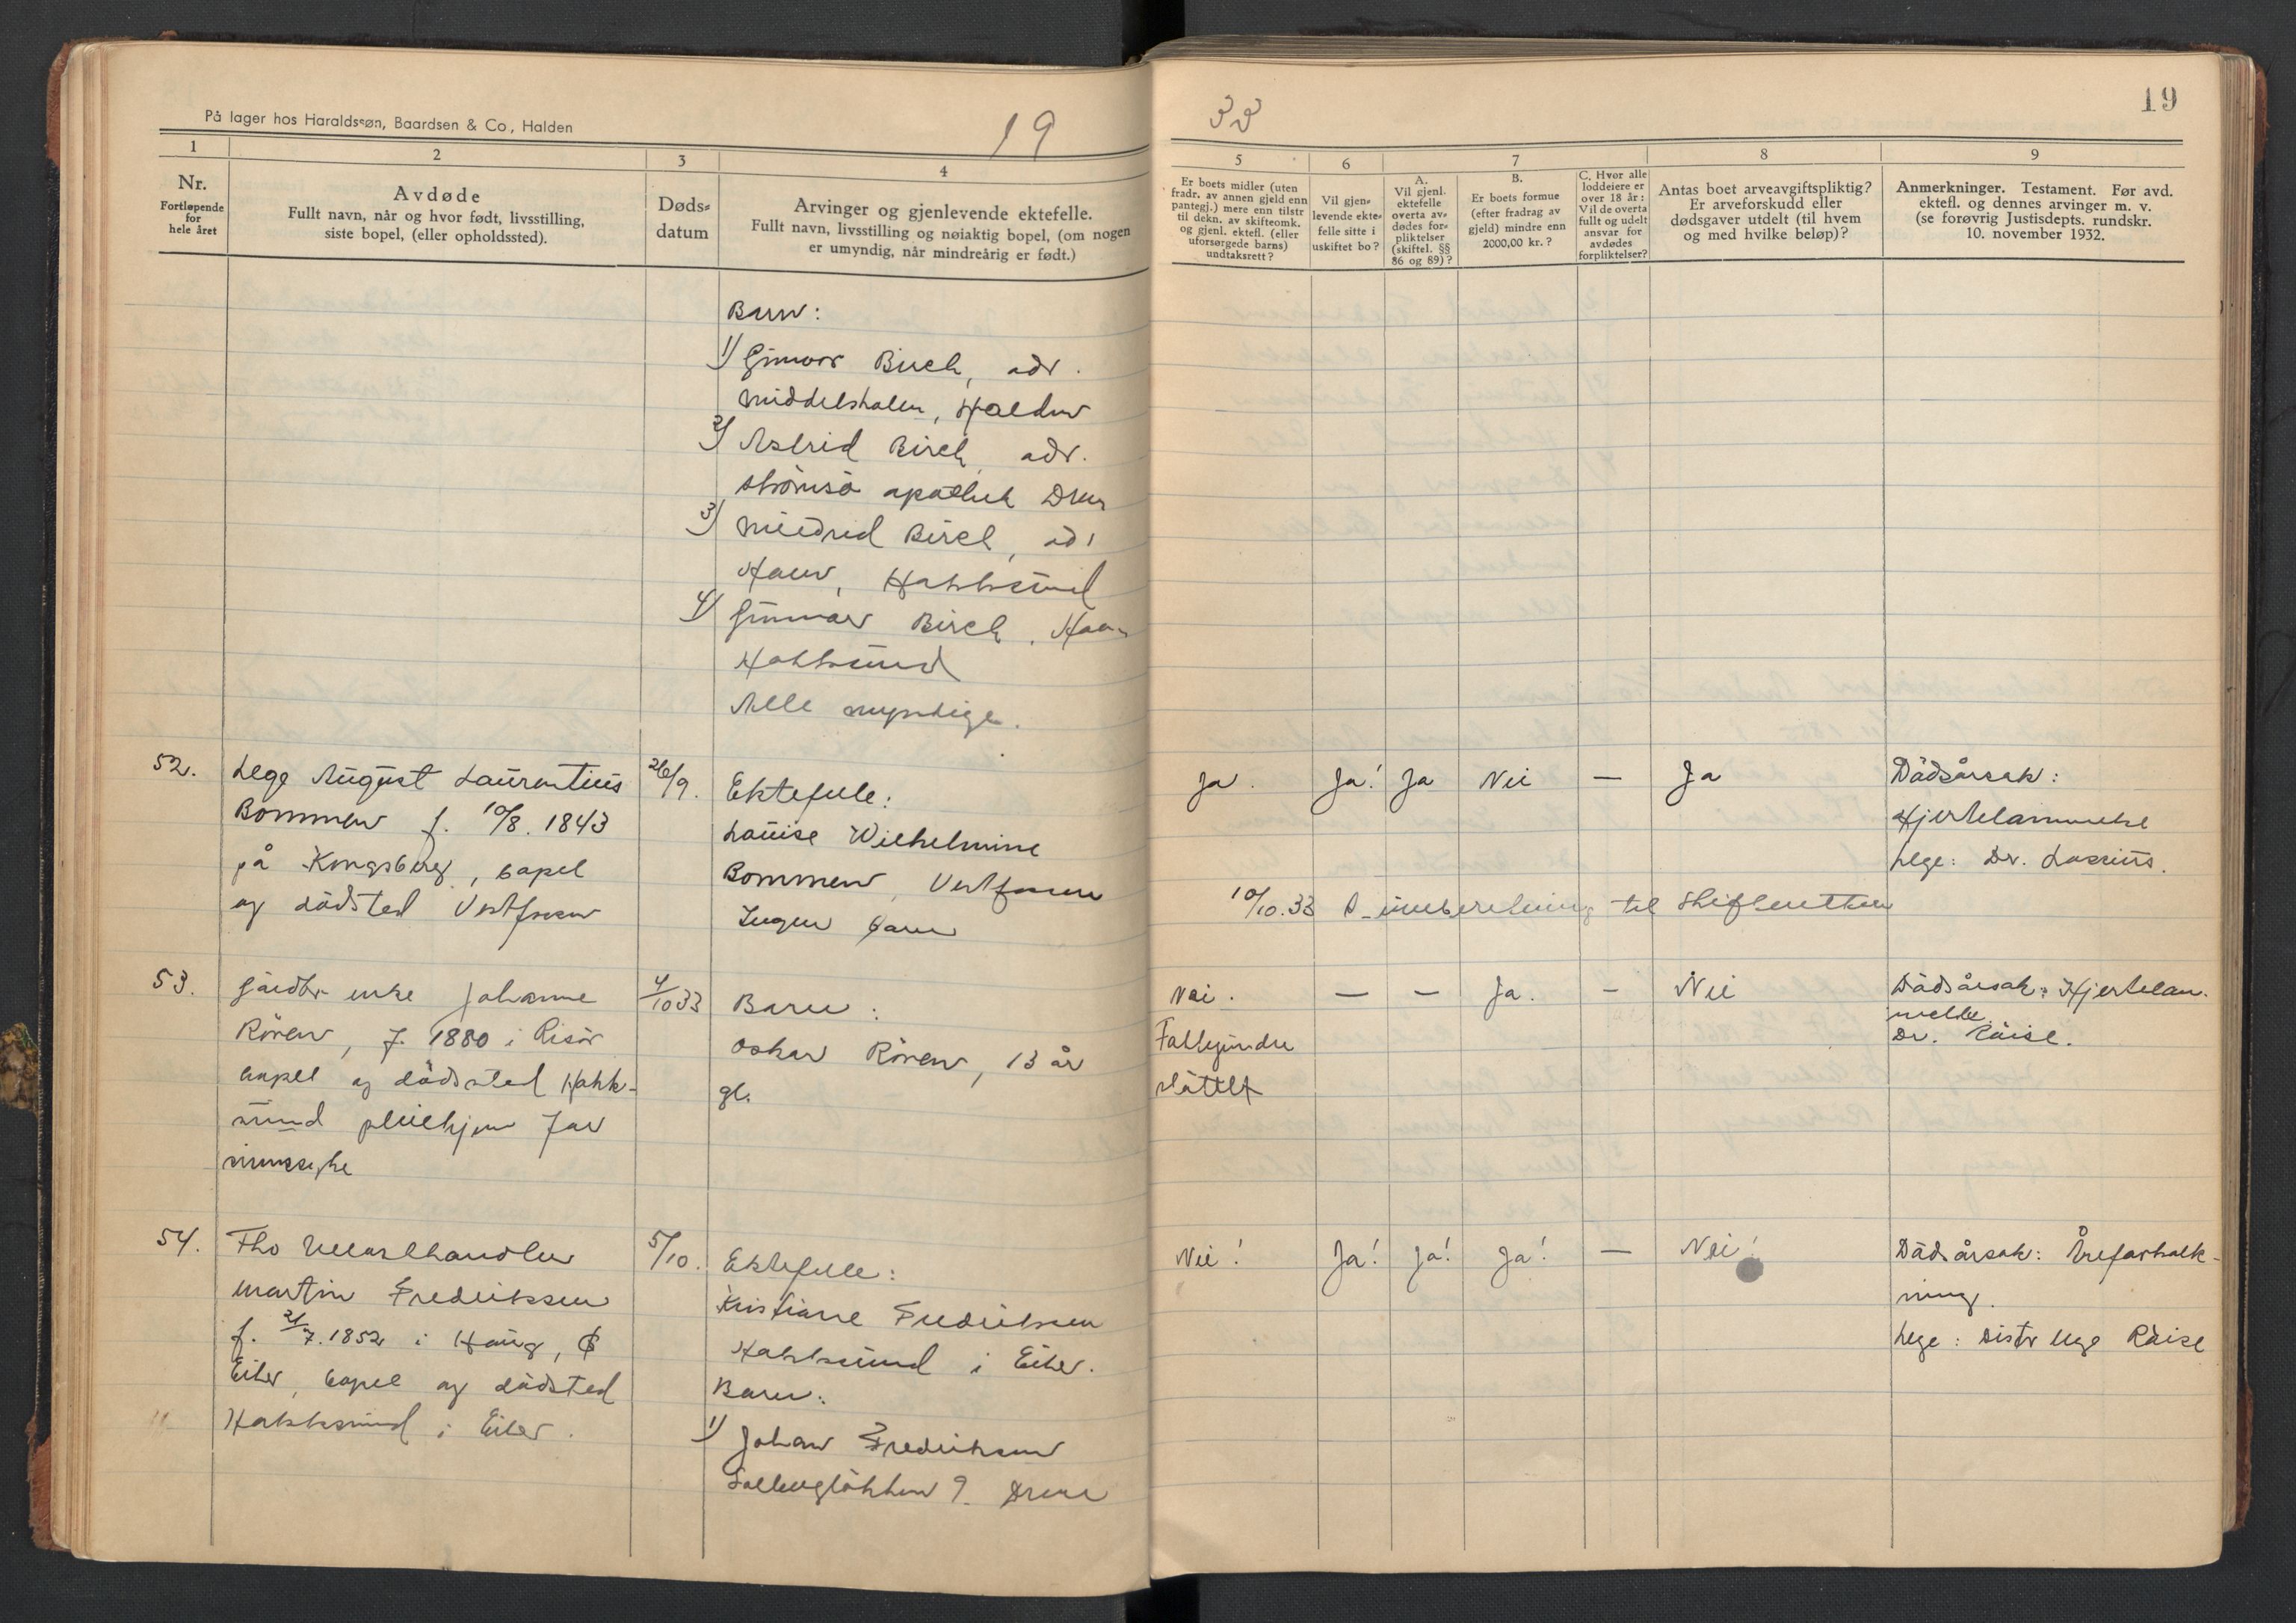 På lager hos Haraldssøn, Baardsen & Co, Halden
19
1
2
3
4
Nr.
Fortløpende
for
hele året
Avdøde
Fullt navn, når og hvor født, livsstilling,
siste bopel, (eller opholdssted).
Døds-
datum
Arvinger og gjenlevende ektefelle.
Fullt navn, livsstilling og nøiaktig bopel, (om nogen
er umyndig, når mindreårig er født.)
Barn:
1) Gunvor Birch, adr.
Middelskolen, Halden
2) Astrid Birch, adr.
Strömsö apothek Drm
3) Mildrid Birch, adr
Haug, Hokksund
4) Gunnar Birch, Haug
Hokksund
Alle myndige.
52.
Lege August Laurentius
Bommen f. 10/8. 1843
på Kongsberg, bopel
og dödsted Vestfossen
26/9.
Ektefelle:
Louise Wilhelmine
Bommen, Vestfossen
Ingen barn
53.
Gårdbr enke Johanne
Rören, f. 1880 i Risör
bopel og dödsted Hokk-
sund pleiehjem for
sinnssyke
4/10 33
Barn:
Oskar Rören, 13 år
gl.
54.
Fho
Martin Fredriksen
f. 21/7. 1852 i Haug,
Eiker, bopel og dödsted
Hokksund i Eiker.
5/10.
Ektefelle:
Kristiane Fredriksen
Hokksund i Eiker.
Barn:
1) Johan Fredriksen
9. Drm
33
19
5
6
7
8
9
Er boets midler (uten
fradr. av annen gjeld enn
pantegj.) mere enn tilstr
til dekn. av skifteomk.
og gjenl. ektefl. (eller
uforsørgede barns)
undtaksrett?
Vil gjen-
levende ekte-
felle sitte i
uskiftet bo?
A.
Vil gjenl.
ektefelle
overta av-
dødes for-
pliktelser
(skiftel. §§
86 og 89)?
B.
Er boets formue
(efter fradrag av
gjeld) mindre enn
2000,00 kr.?
C. Hvor alle
loddeiere er
over 18 år:
Vil de overta
fullt og udelt
ansvar for
avdødes
forpliktelser?
Antas boet arveavgiftspliktig?
Er arveforskudd eller
dødsgaver utdelt (til hvem
og med hvilke beløp)?
Anmerkninger. Testament. Før avd.
ektefl. og dennes arvinger m. v.
(se forøvrig Justisdepts. rundskr.
10. november 1932.
Ja. Ja! Ja Nei — Ja
Dödsårsak:
Hjertelammelse
Lege: Dr. Lassius.
10/10. 33 D-innberetning til Skifteretten
Nei. — — Ja. — Nei
Fattigunder
støttet
Dödsårsak: Hjertelam-
melse.
Dr. Röise.
Nei! Ja! Ja! Ja! — Nei!
Dödsårsak: Åreforkalk-
ning.
Lege: Distr lege Röise